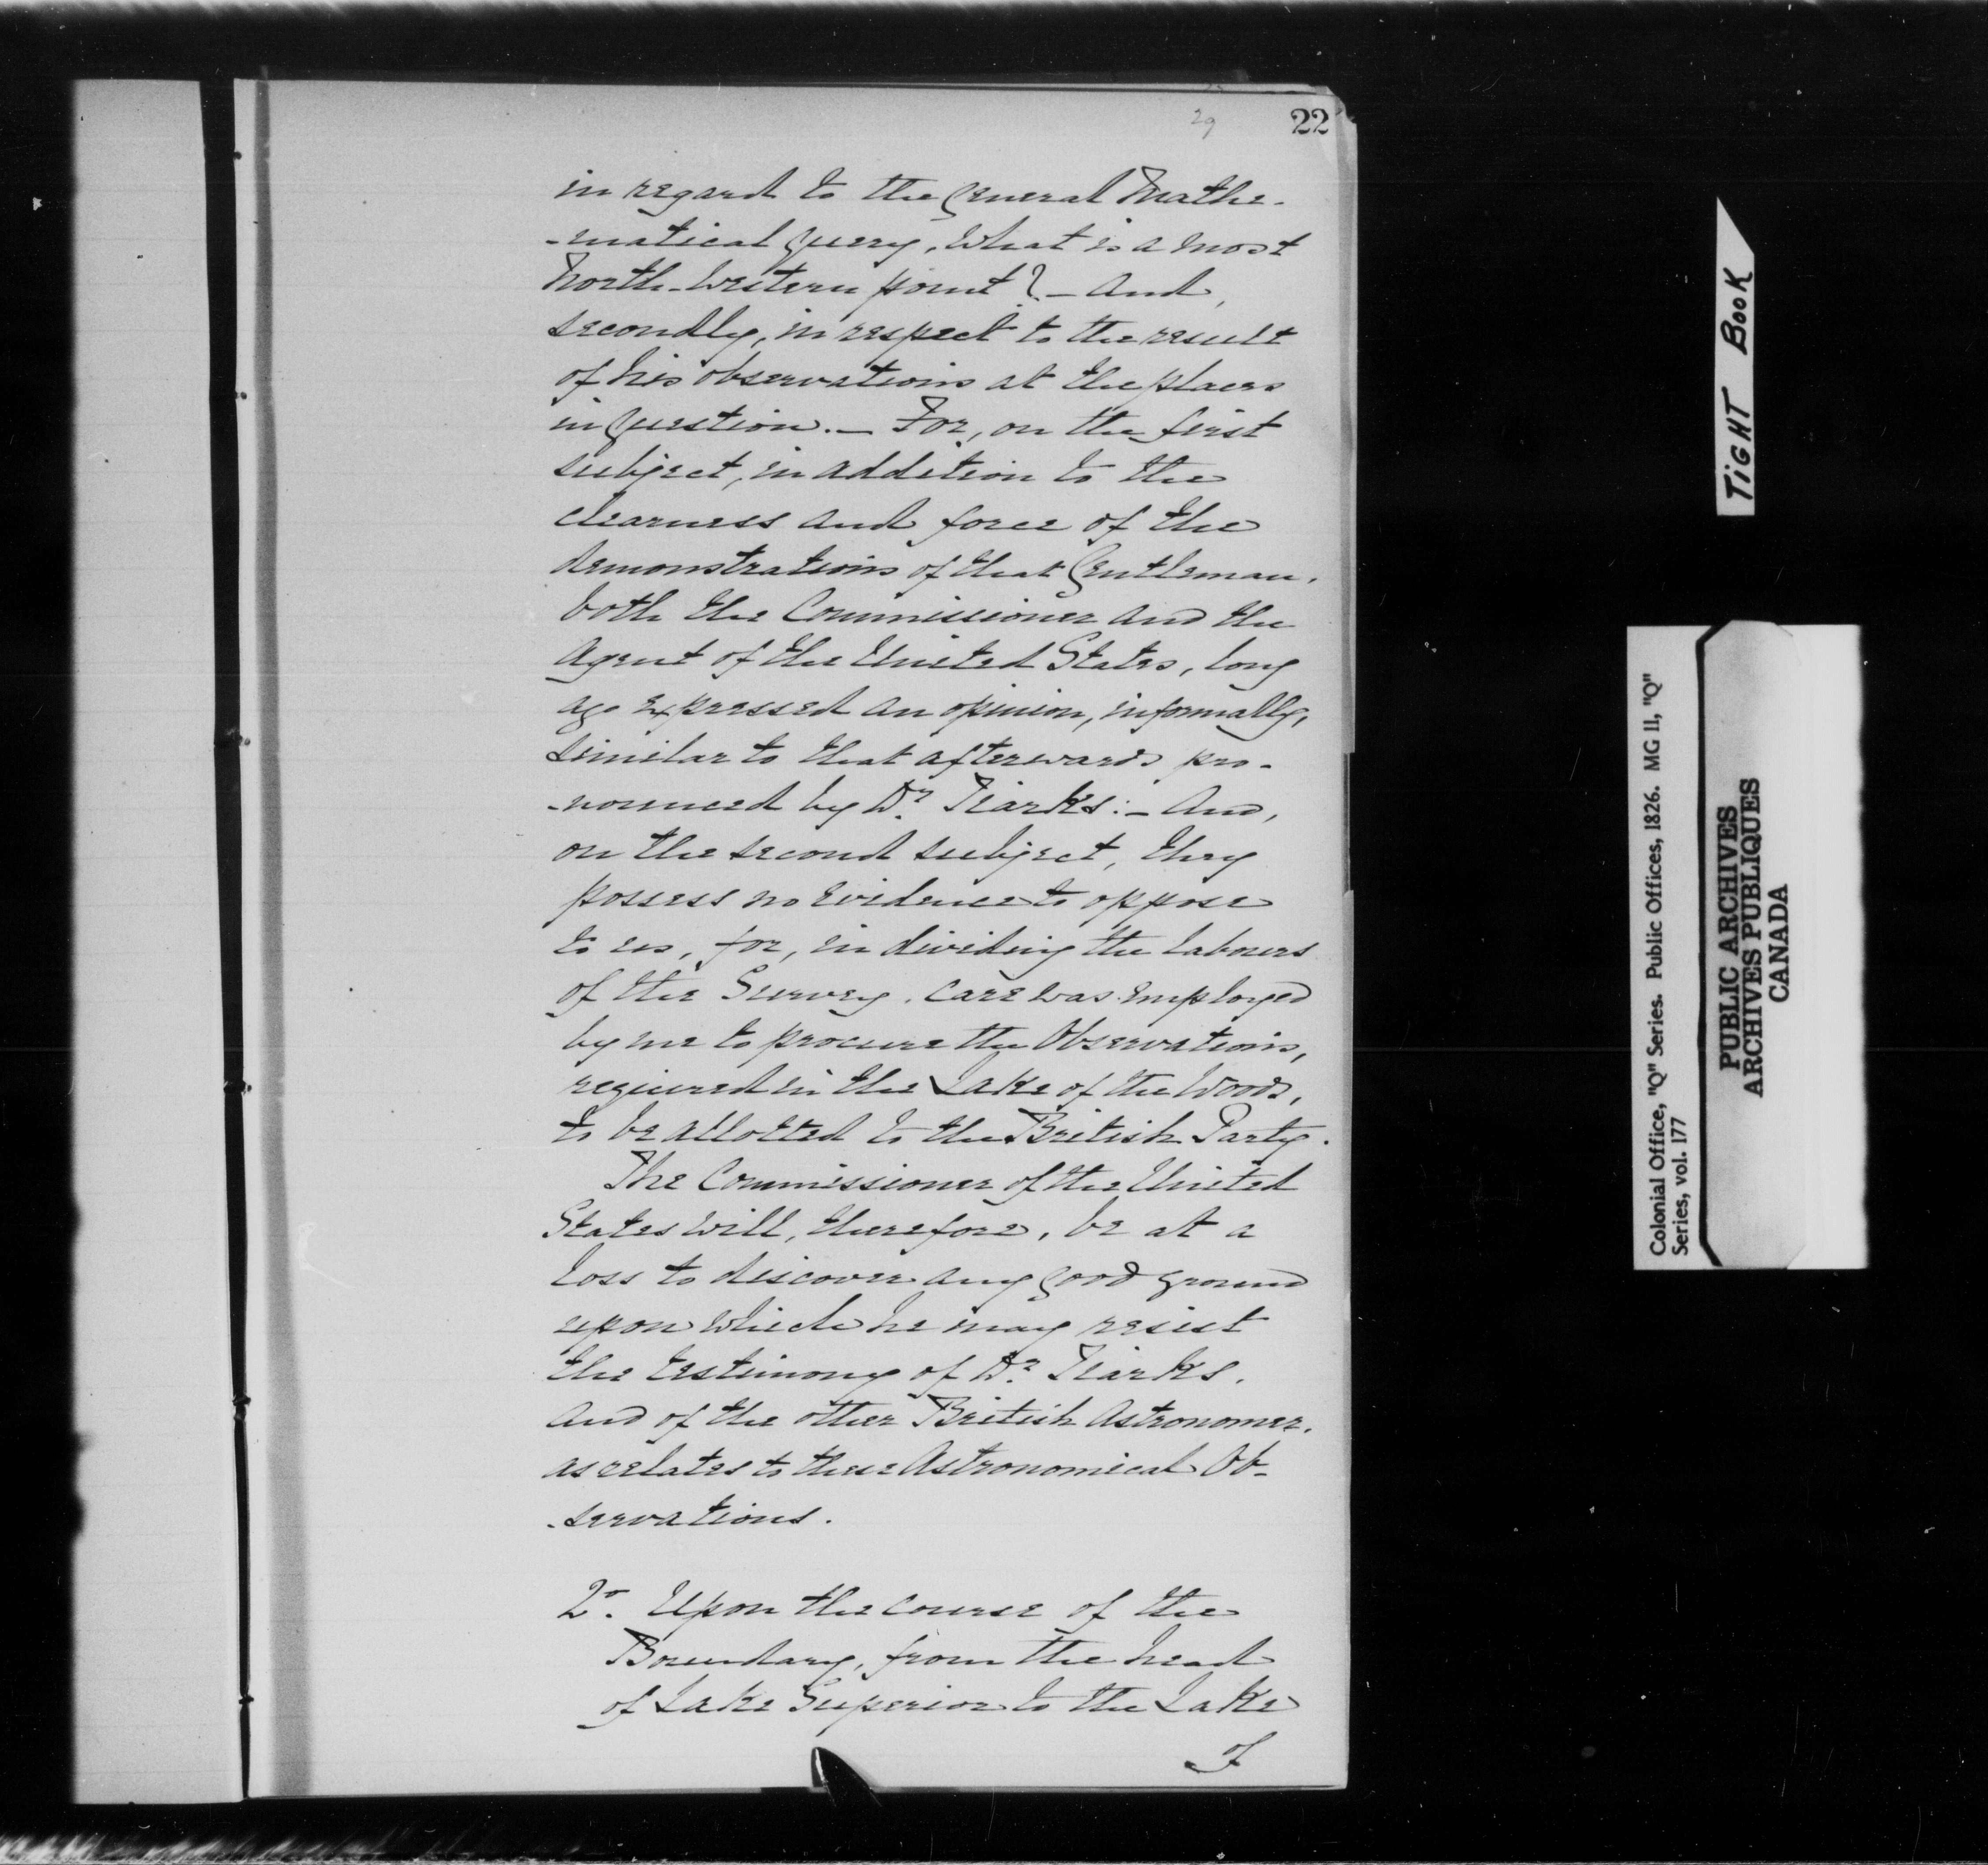 29
22
in regard to the General Mathe-
-matical Query, What is a most
North-Western point? — And,
secondly, in respect to the result
of his observations at the places
in Question. — For, on the first
subject, in addition to the
clearness and force of the
demonstrations of that Gentleman,
both the Commissioner and the
Agent of the United States, long
ago expressed an opinion, informally,
similar to that afterwards pro-
-nounced by Dr. Tiarks: — And,
on the second subject, they
possess no evidence to oppose
to us, for, in dividing the labours
of the Survey, care was employed
by me to procure the Observations,
required in the Lake of the Woods,
to be allotted to the British Party.
The Commissioner of the United
States will, therefore, be at a
loss to discover any good ground
upon which he may resist
the testimony of Dr. Tiarks,
and of the other British Astronomer,
as relates to these Astronomical Ob-
-servations.
2o. Upon the course of the
Boundary, from the head
of Lake Superior to the Lake
of
TIGHT BOOK
Colonial Office, "Q" Series. Public Offices, 1826. MG 11, "Q"
Series, vol. 177
PUBLIC ARCHIVES
ARCHIVES PUBLIQUES
CANADA